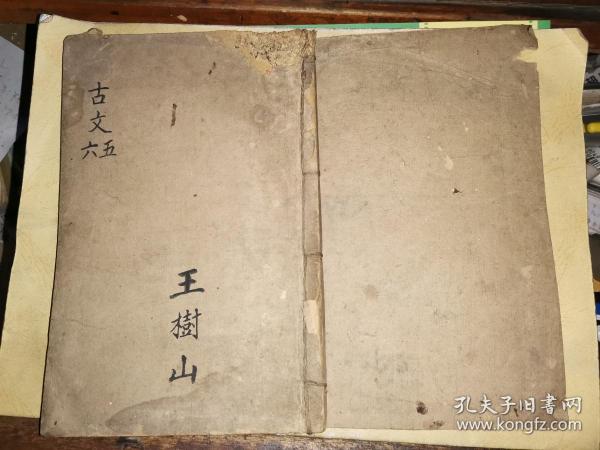 古文
五六
王樹山
孔夫子旧書网
www.kongfz.com